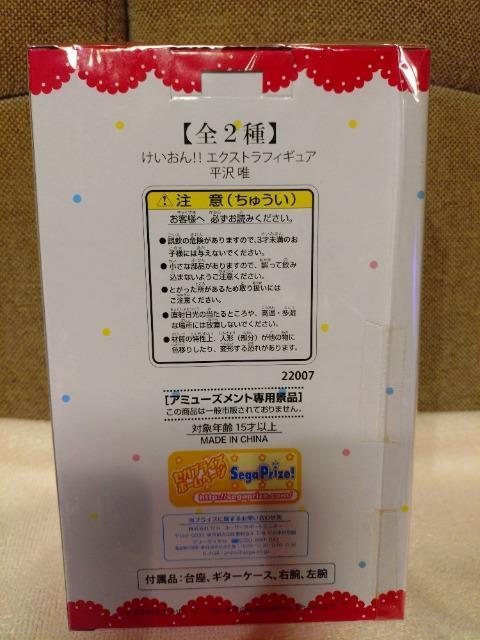 【全２種】
けいおん!! エクストラフィギュア
平沢 唯
注 意(ちゅうい)
お客様へ 必ずお読みください。
●誤飲の危険がありますので、3才未満のお
子様には与えないでください。
●小さな部品がありますので、誤って飲み
込まないようご注意ください。
●とがった所があるため取り扱いには
ご注意ください。
●直射日光の当たるところや、高温・多湿
な場所には放置しないでください。
●材質の特性上、人形(部分)が他の物に
色移りしたり、変形する恐れがあります。
22007
[アミューズメント専用景品]
この商品は一般市販されておりません。
対象年齢 15才以上
MADE IN CHINA
セガプライズ
ホームページ
SegaPrize!
http://segaprize.com/
当プライズに関するお問い合わせ先
付属品：台座、ギターケース、右腕、左腕